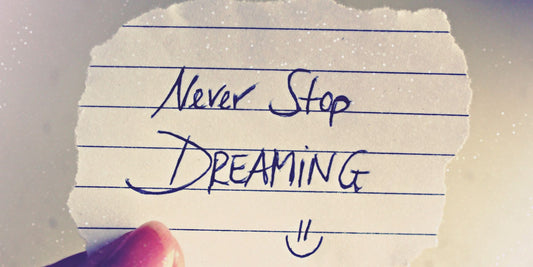 Never Stop
DREAMiNG